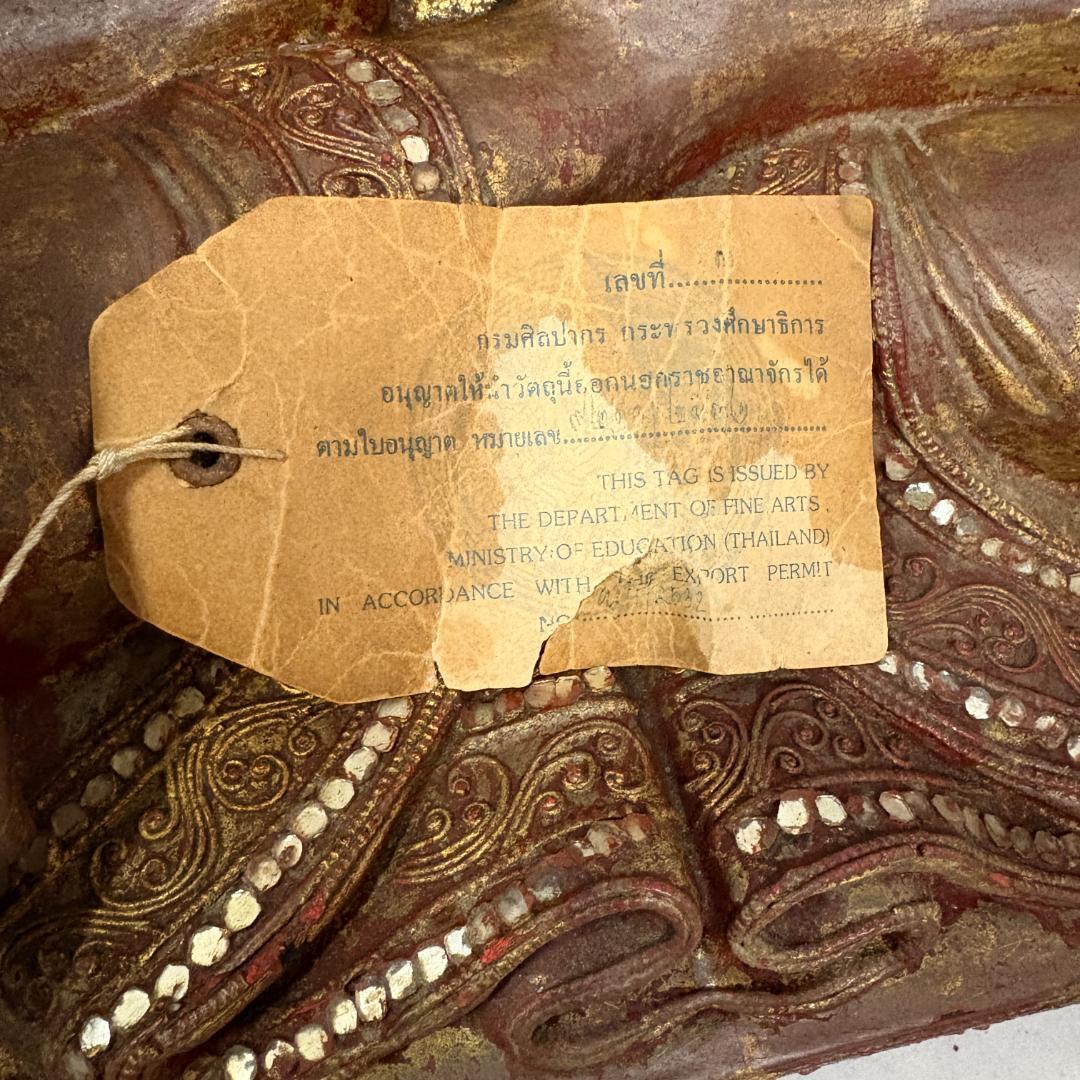 เลขที่....................
กรมศิลปากร กระทรวงศึกษาธิการ
อนุญาตให้นำวัตถุนี้ออกนอกราชอาณาจักรได้
ตามใบอนุญาต หมายเลข....................
THIS TAG IS ISSUED BY
THE DEPARTMENT OF FINE ARTS,
MINISTRY OF EDUCATION (THAILAND)
IN ACCORDANCE WITH THE EXPORT PERMIT
NO....................